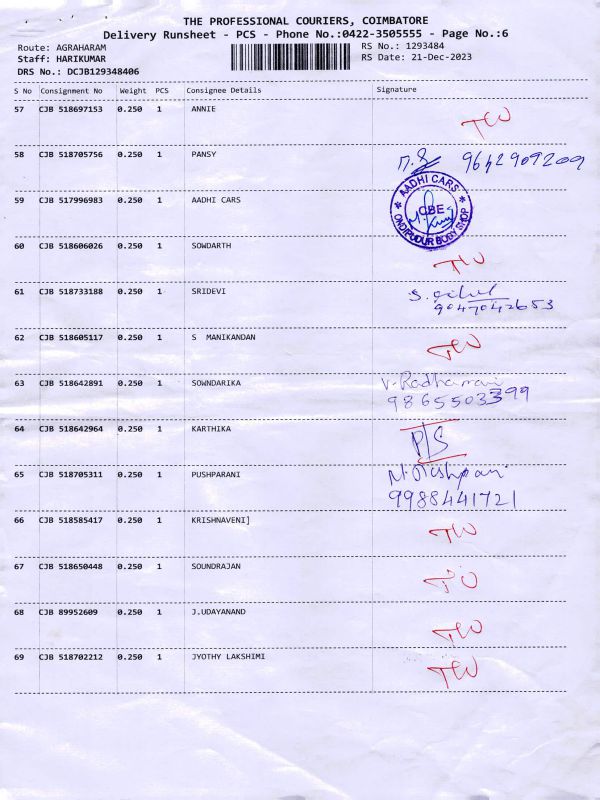 THE PROFESSIONAL COURIERS, COIMBATORE
Delivery Runsheet - PCS - Phone No.:0422-3505555 - Page No.:6
Route: AGRAHARAM RS No.: 1293484
Staff: HARIKUMAR RS Date: 21-Dec-2023
DRS No.: DCJB129348406
S No Consignment No Weight PCS Consignee Details Signature
57 CJB 518697153 0.250 1 ANNIE TW
58 CJB 518705756 0.250 1 PANSY
59 CJB 517996983 0.250 1 AADHI CARS
* AADHI CARS *
CBE
ONDIPUDUR BODY SHOP
60 CJB 518606026 0.250 1 SOWDARTH TW
61 CJB 518733188 0.250 1 SRIDEVI
9047042653
62 CJB 518605117 0.250 1 S MANIKANDAN TW
63 CJB 518642891 0.250 1 SOWNDARIKA
9865503399
64 CJB 518642964 0.250 1 KARTHIKA P/S
65 CJB 518705311 0.250 1 PUSHPARANI
9988441721
66 CJB 518585417 0.250 1 KRISHNAVENI] TW
67 CJB 518650448 0.250 1 SOUNDRAJAN
68 CJB 89952609 0.250 1 J.UDAYANAND TW
69 CJB 518702212 0.250 1 JYOTHY LAKSHIMI TW